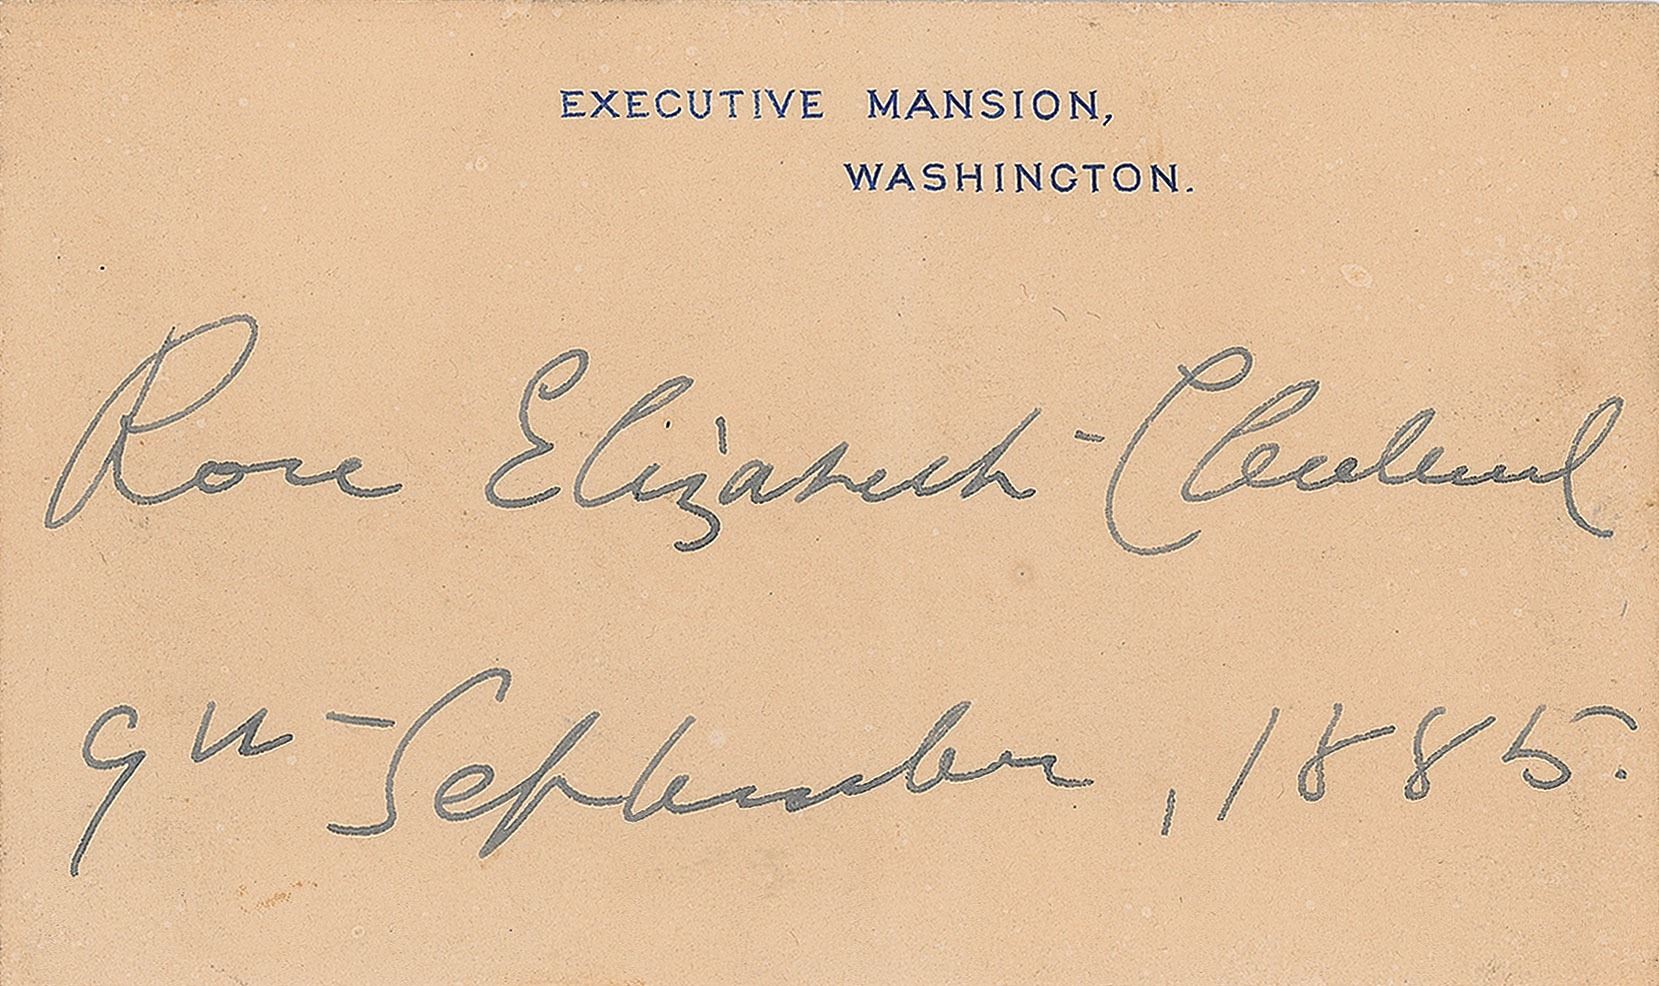 EXECUTIVE MANSION,
WASHINGTON.
Rose Elizabeth Cleveland
9th September, 1885.